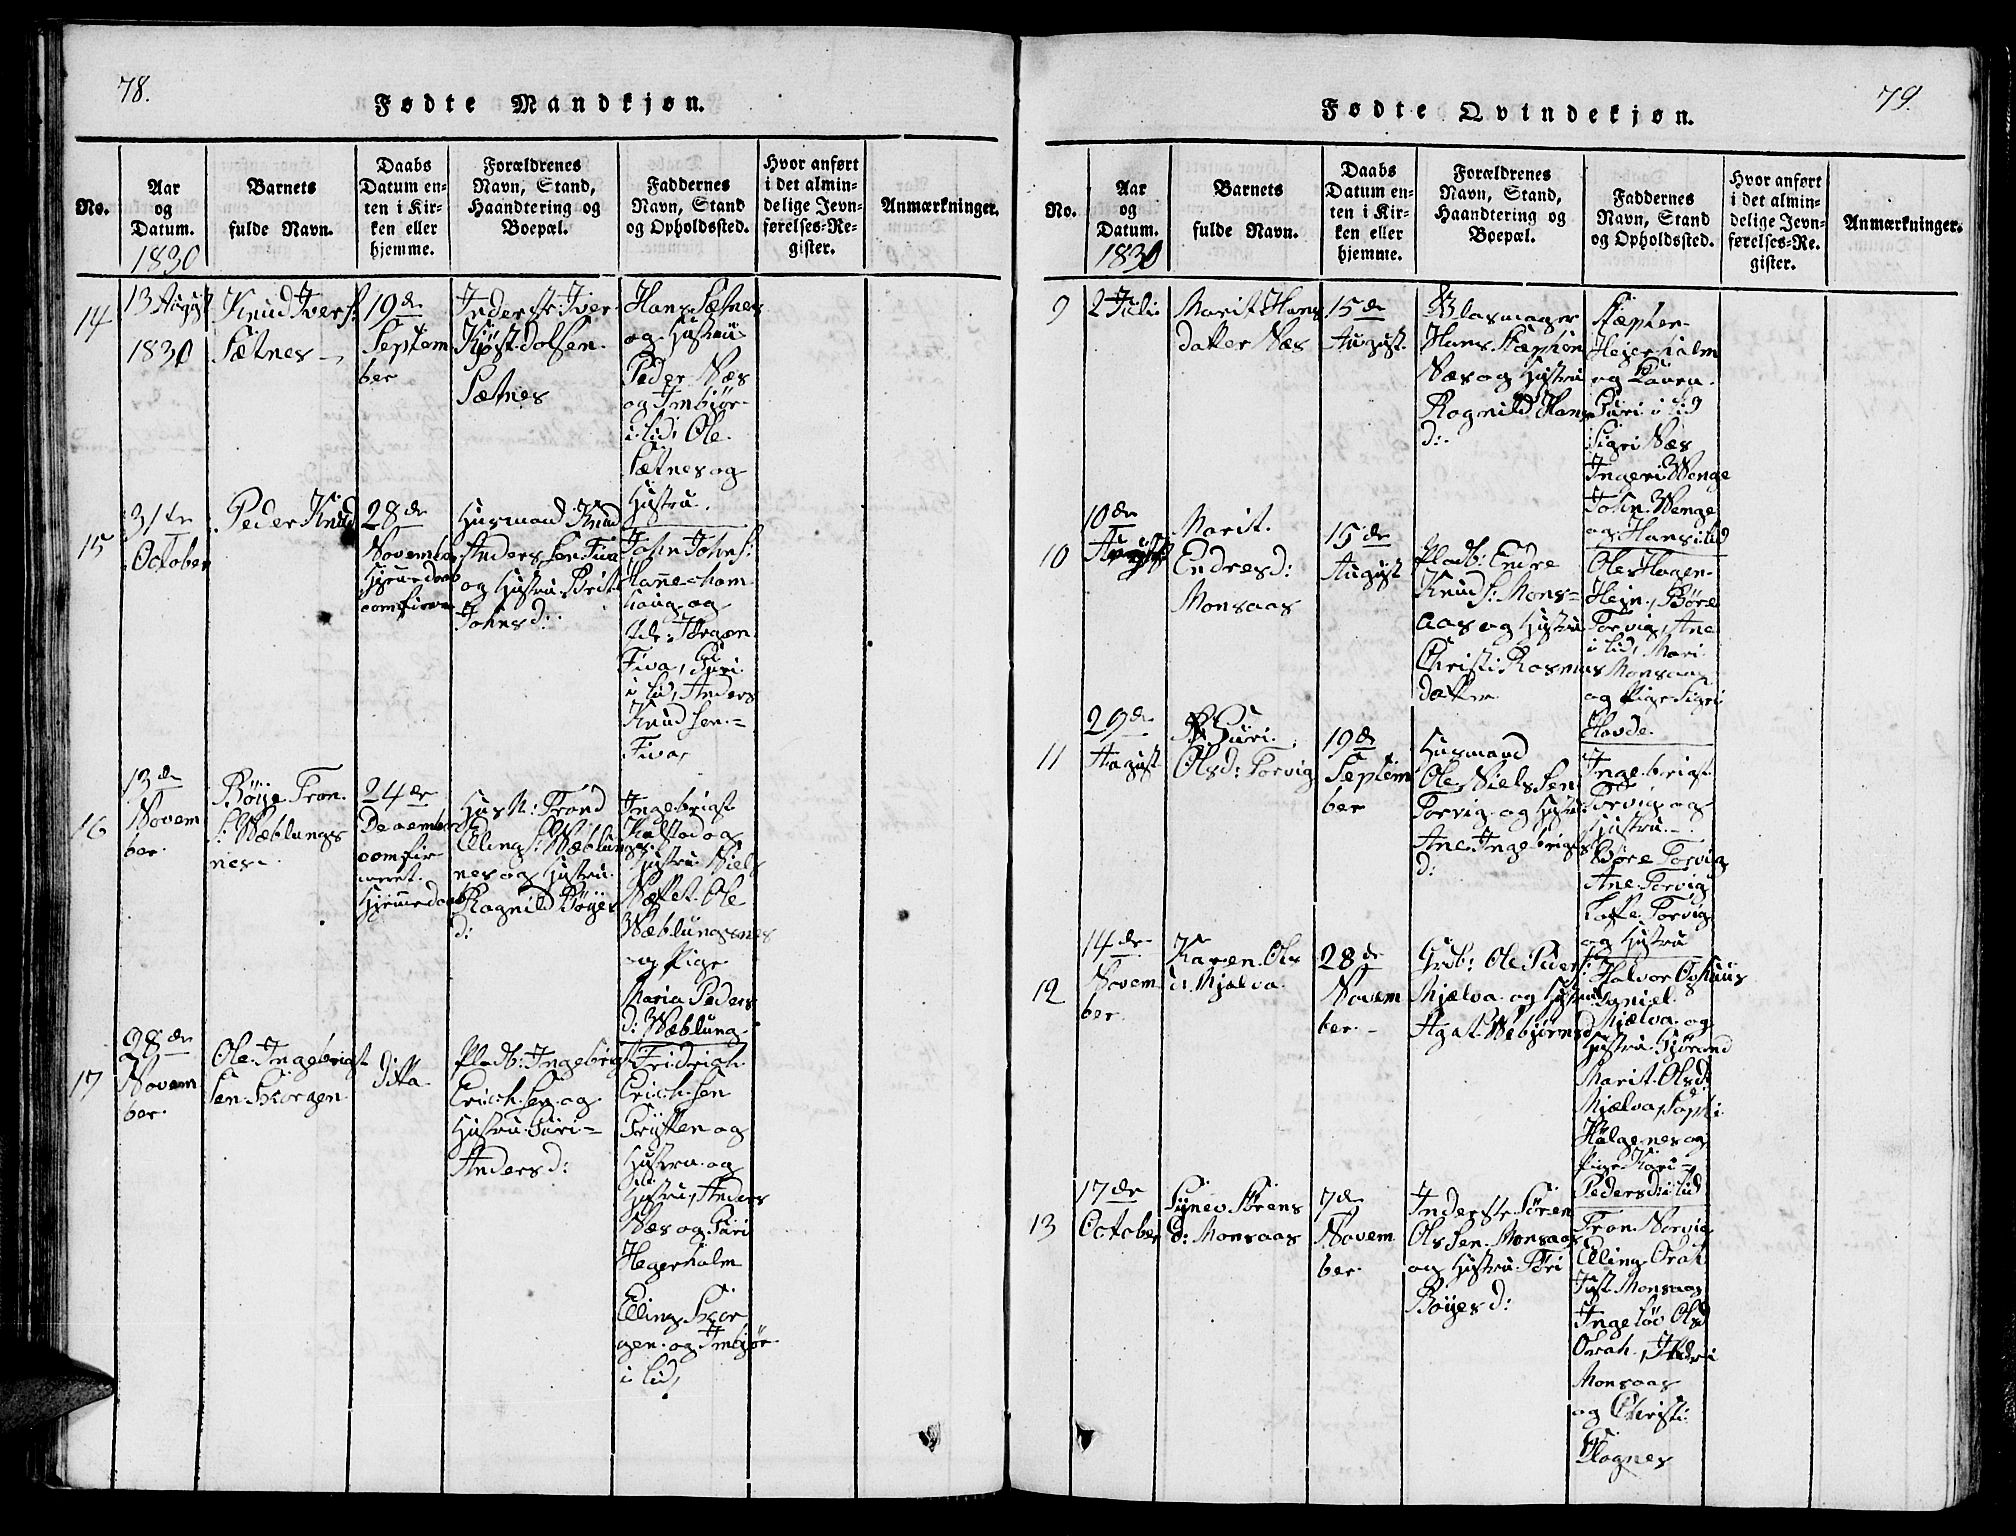 78.
Fødte Mandkjøn.
No.
Aar
og
Datum.
1830
Barnets
fulde Navn.
Daabs
Datum en-
ten i Kir-
ken eller
hjemme.
Forældrenes
Navn, Stand,
Haandtering og
Boepæl.
Faddernes
Navn, Stand
og Opholdssted.
Hvor anført
i det almin-
delige Jevn-
førelses-Re-
gister.
Anmærkninger.
14
13 August
1830
Knud Ivers:
Sætnes
19de
Septem
ber
Inderste Iver
Sætnes
Hans Sætnes
og Hustrue
Peder Næs
og Imbiør
i Lid, Ole
Sætnes og
Hustru.
15
31te
October
Peder Knud
28de
November
Hjemmedøbt
Husmand Knud
Anderssen Fiva
og Hustru Brit
Johnsd:
John Johns:
og
Fiva, Guri
i Lid, Anders
Knudsen
Fiva,
16
13de
November
Böye Tron
s: Væblungs
nes
24de
December
comfir
meret.
Huusm: Trond
Ellings: Væblungs
nes og Hustru
Ragnild Böyes
d:
Ingebrigt
og
Hustru Niels
Ole
Væblungsnes
og Pige
Maria Peders
d: Væblung
17
28de
November
Ole Ingebrigt
sen Skorgen
ditto
Pladb: Ingebrigt
Erichsen og
Hustru Guri
Andersd:
Fridrich
Erichsen
og
Hustru og
Hustru, Anders
Næs og Guri
Hegerholm
Elling Skor
gen og Imbjør
i Lid,
79.
Fødte Qvindekjøn.
No.
Aar
og
Datum.
1830
Barnets
fulde Navn.
Daabs
Datum en-
ten i Kir-
ken eller
hjemme.
Forældrenes
Navn, Stand,
Haandtering og
Boepæl.
Faddernes
Navn, Stand
og Opholdssted.
Hvor anført
i det almin-
delige Jevn-
førelses-Re-
gister.
Anmærkninger.
9
2 Juli
Marit Hans
datter Næs
15de
August
Hans Stephen
Næs og Hustru
Ragnild Hans
d:
Stephen
Hejerholm
og Karen
Guri i Lid
Sigri Næs
Ingeri Venge
John Venge
og Hans i Lid
10
10de
August
Marit
Endresd:
Monsaas
15de
August
Pladb: Endre
Knuds: Mons-
aas og Hustru
Christi Rasmus
datter
Ole Hagen
Torvig, Ane
i Lid, Mari
Monsaas
og Pige Sigri
Hovde.
11
29de
August
Guri
Olsd: Torvig
19de
Septem
ber
Husmand
Ole Nielssen
Torvig og Hustru
Ane Ingebrigts
d:
Ingebrigt
Torvig og
Hustru
Børe Torvig
Ane Torvig
Torvig
og Hustru
12
14de
Novem
ber
Karen Ols
d: Mjelva
28de
Novem
ber
Grdb: Ole Peders:
Mjelva og Hustru
Agat Vebjørnsd
Halvor
Daniel
Mjelva og
Hustru
Marit Olsd:
Mjelva,
og
Pige Kari
Pedersd: i Lid
13
17de
October
Synev Sørens
d: Monsaas
7de
Novem
ber
Inderste Sören
Olssen Monsaas
og Hustru Töri
Böyesd:
Tron Norvig
Elling Orah
Monsaas
Olsd
Orah,
Monsaas
og Christi